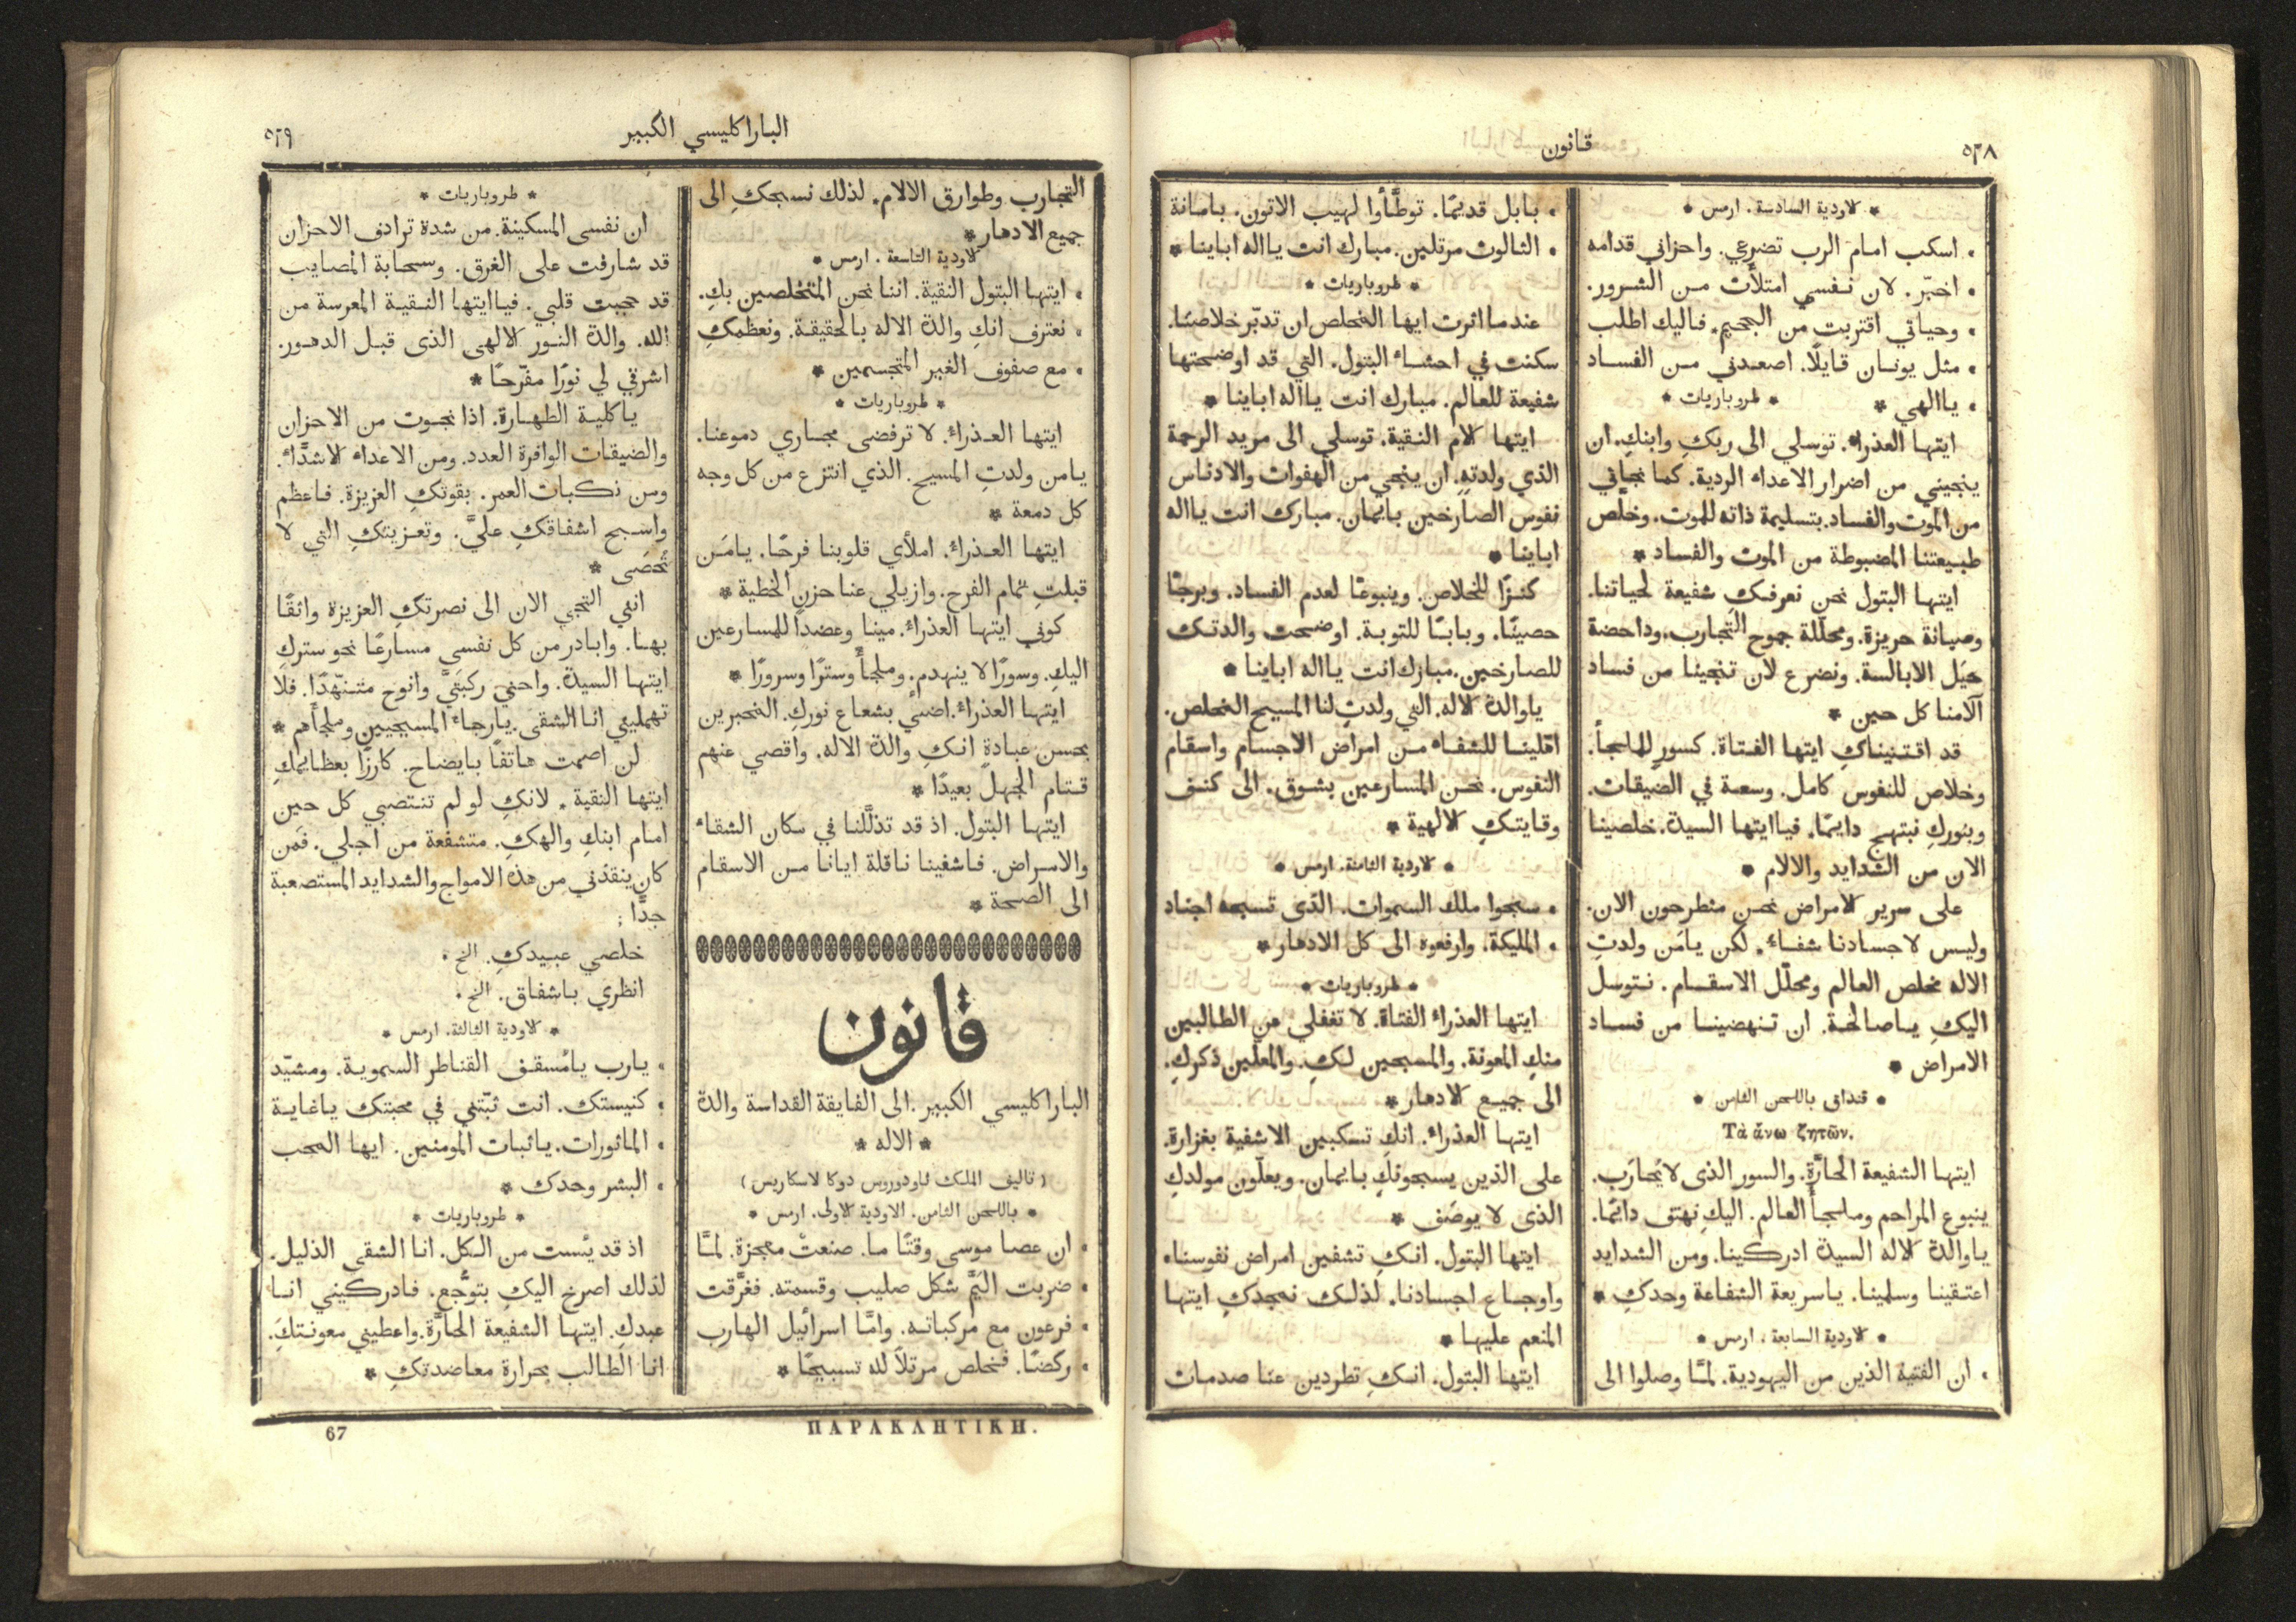 ٥٢٨
قانون
* الاودية السادسة . ارمس *
• اسكب امام الرب تضرعي. واحزاني قدامه
• اخبّر. لان نفسي امتلأت من الشرور.
• وحياتي اقتربت من الجحيم. فاليك اطلب
• مثل يونان قايلًا. اصعدني من الفساد
• ياالهي * * طروباريات *
ايتها العذراء. توسلي الى ربكِ وابنكِ. ان
ينجيني من اضرار الاعداء الردية. كما نجاني
من الموت والفساد. بتسليمة ذاته للموت. وخلَّص
طبيعتنا المضبوطة من الموت والفساد *
ايتها البتول نحن نعرفكِ شفيعة لحياتنا.
وصيانة حريزة. ومحلّلة جموح التجارب. وداحضة
حيَل الابالسة. ونضرع لان تنجينا من فساد
آلامنا كل حين *
قد اقتنيناكِ ايتها الفتاة. كسورٍ للملجأ.
وخلاص للنفوس كامل. وسعة في الضيقات.
وبنوركِ نبتهج دايمًا. فياايتها السيدة. خلصينا
الان من الشدايد والالام *
على سرير الامراض نحن منطرحون الان.
وليس لاجسادنا شفاء. لكن يامَن ولدتِ
الاله مخلص العالم ومحلّل الاسقام. نتوسل
اليكِ ياصالحة. ان تنهضينا من فساد
الامراض *
* قنداق باللحن الثامن *
Τὰ ἄνω ζητῶν.
ايتها الشفيعة الحارّة. والسور الذى لايُحارَب.
ينبوع المراحم وملجأ العالم. اليكِ نهتف دائمًا.
ياوالدة الاله السيدة ادركينا. ومن الشدايد
اعتقينا وسلمينا. ياسريعة الشفاعة وحدكِ *
* الاودية السابعة . ارمس *
• ان الفتية الذين من اليهودية. لمَّا وصلوا الى
• بابل قديمًا. توطَّأوا لهيب الاتون. بامانة
• الثالوث مرتلين. مبارك انت يااله اباينا *
* طروباريات *
عندما اثرت ايها المخلص ان تدبّر خلاصنا.
سكنت في احشاء البتول. التي قد اوضحتها
شفيعة للعالم. مبارك انت يااله اباينا *
ايتها الام النقية. توسلي الى مريد الرحمة
الذي ولدتهِ. ان ينجي من الهفوات والادناس
نفوس الصارخين بايمان. مبارك انت يااله
اباينا *
كنزًا للخلاص. وينبوعًا لعدم الفساد. وبرجًا
حصينًا. وبابًا للتوبة. اوضحت والدتك
للصارخين. مبارك انت يااله اباينا *
ياوالدة الاله. التي ولدتِ لنا المسيح المخلص.
اقلينا للشفاء من امراض الاجسام واسقام
النفوس. نحن المسارعين بشوق. الى كنف
وقايتكِ الالهية *
* الاودية الثامنة. ارمس *
• سبحوا ملك السموات. الذى تسبحه اجناد
• المليكة. وارفعوه الى كل الادهار *
* طروباريات *
ايتها العذراء الفتاة. لا تغفلي عن الطالبين
منكِ المعونة. والمسبحين لكِ. والمعلّين ذكركِ.
الى جميع الادهار *
ايتها العذراء. انكِ تسكبين الاشفية بغزارة.
على الذين يسبحونكِ بايمان. ويعلّون مولدكِ
الذى لا يوصَف *
ايتها البتول. انكِ تشفين امراض نفوسنا.
واوجاع اجسادنا. لذلك نمجدكِ ايتها
المنعم عليها *
ايتها البتول. انكِ تطردين عنا صدمات
الباراكليسي الكبير
٥٢٩
التجارب وطوارق الالام. لذلك نسبحكِ الى
جميع الادهار *
الاودية التاسعة . ارمس *
• ايتها البتول النقية. اننا نحن المتخلصين بكِ.
• نعترف انكِ والدة الاله بالحقيقة. ونعظمكِ
• مع صفوف الغير المتجسمين *
* طروباريات *
ايتها العذراء. لا ترفضى مجاري دموعنا.
يامن ولدتِ المسيح. الذي انتزع من كل وجه
كل دمعة *
ايتها العذراء. املأي قلوبنا فرحًا. يامَن
قبلتِ تمام الفرح. وازيلي عنا حزن الخطية *
كوني ايتها العذراء. مينا وعضدًا للمسارعين
اليكِ. وسورًا لا ينهدم. وملجأً وسترًا وسرورًا *
ايتها العذراء. اضيي بشعاع نوركِ. المخبرين
بحسن عبادةٍ انكِ والدة الاله. واقصي عنهم
قتام الجهل بعيدًا *
ايتها البتول. اذ قد تذلَّلنا في مكان الشقاء
والامراض. فاشفينا ناقلة ايانا من الاسقام
الى الصحة *
قانون
الباراكليسي الكبير. الى الفايقة القداسة والدة
* الاله *
( تاليف الملك ثاودوروس دوكا لاسكاريس )
* باللحن الثامن. الاودية الاولى. ارمس *
• ان عصا موسى وقتًا ما. صنعتْ معجزة. لمَّا
• ضربت اليَمَّ شكل صليب وقسمته. فغرَّقت
• فرعون مع مركباته. وامَّا اسرائيل الهارب
• ركضًا. فخلص مرتلاً لله تسبيحًا *
* طروباريات *
ان نفسى المسكينة. من شدة ترادف الاحزان
قد شارفت على الغرق. وسحابة المصايب
قد حجبت قلبي. فياايتها النقية المعرسة من
الله. والدة النور الالهى الذى قبل الدهور.
اشرقي لي نورًا مفرّحًا *
ياكلية الطهارة. اذا نجوت من الاحزان
والضيقات الوافرة العدد. ومن الاعداء الاشدَّاء.
ومن نكبات العمر. بقوتكِ العزيزة. فاعظم
واسبح اشفاقكِ عليَّ. وتعزيتكِ التي لا
تُحصَى *
انني التجي الان الى نصرتكِ العزيزة واثقًا
بها. وابادر من كل نفسي مسارعًا نحو ستركِ
ايتها السيدة. واحني ركبتَيَّ وانوح متنهّدًا. فلا
تهمليني انا الشقى. يارجاء المسيحيين وملجأهم *
لن اصمت هاتفًا بايضاح. كارزًا بعظايمكِ
ايتها النقية. لانكِ لو لم تنتصبي كل حين
امام ابنكِ والهكِ. متشفعة من اجلي. فمَن
كان ينقذني من هذه الامواج والشدايد المستصعبة
جدًّا :
خلصي عبيدكِ. الخ •
انظري باشفاق. الخ •
* الاودية الثالثة. ارمس *
• يارب يامُسقف القناطر السموية. ومشيّد
• كنيستك. انت ثبّتني في محبتك ياغاية
• الماثورات. ياثبات المومنين. ايها المحب
• البشر وحدك *
* طروباريات *
اذ قد يئست من الكل. انا الشقى الذليل.
لذلك اصرخ اليكِ بتوجُّع. فادركيني انا
عبدكِ. ايتها الشفيعة الحارَّة. واعطيني معونتكَ.
انا الطالب بحرارة معاضدتكِ *
ΠΑΡΑΚΛΗΤΙΚΗ.
67